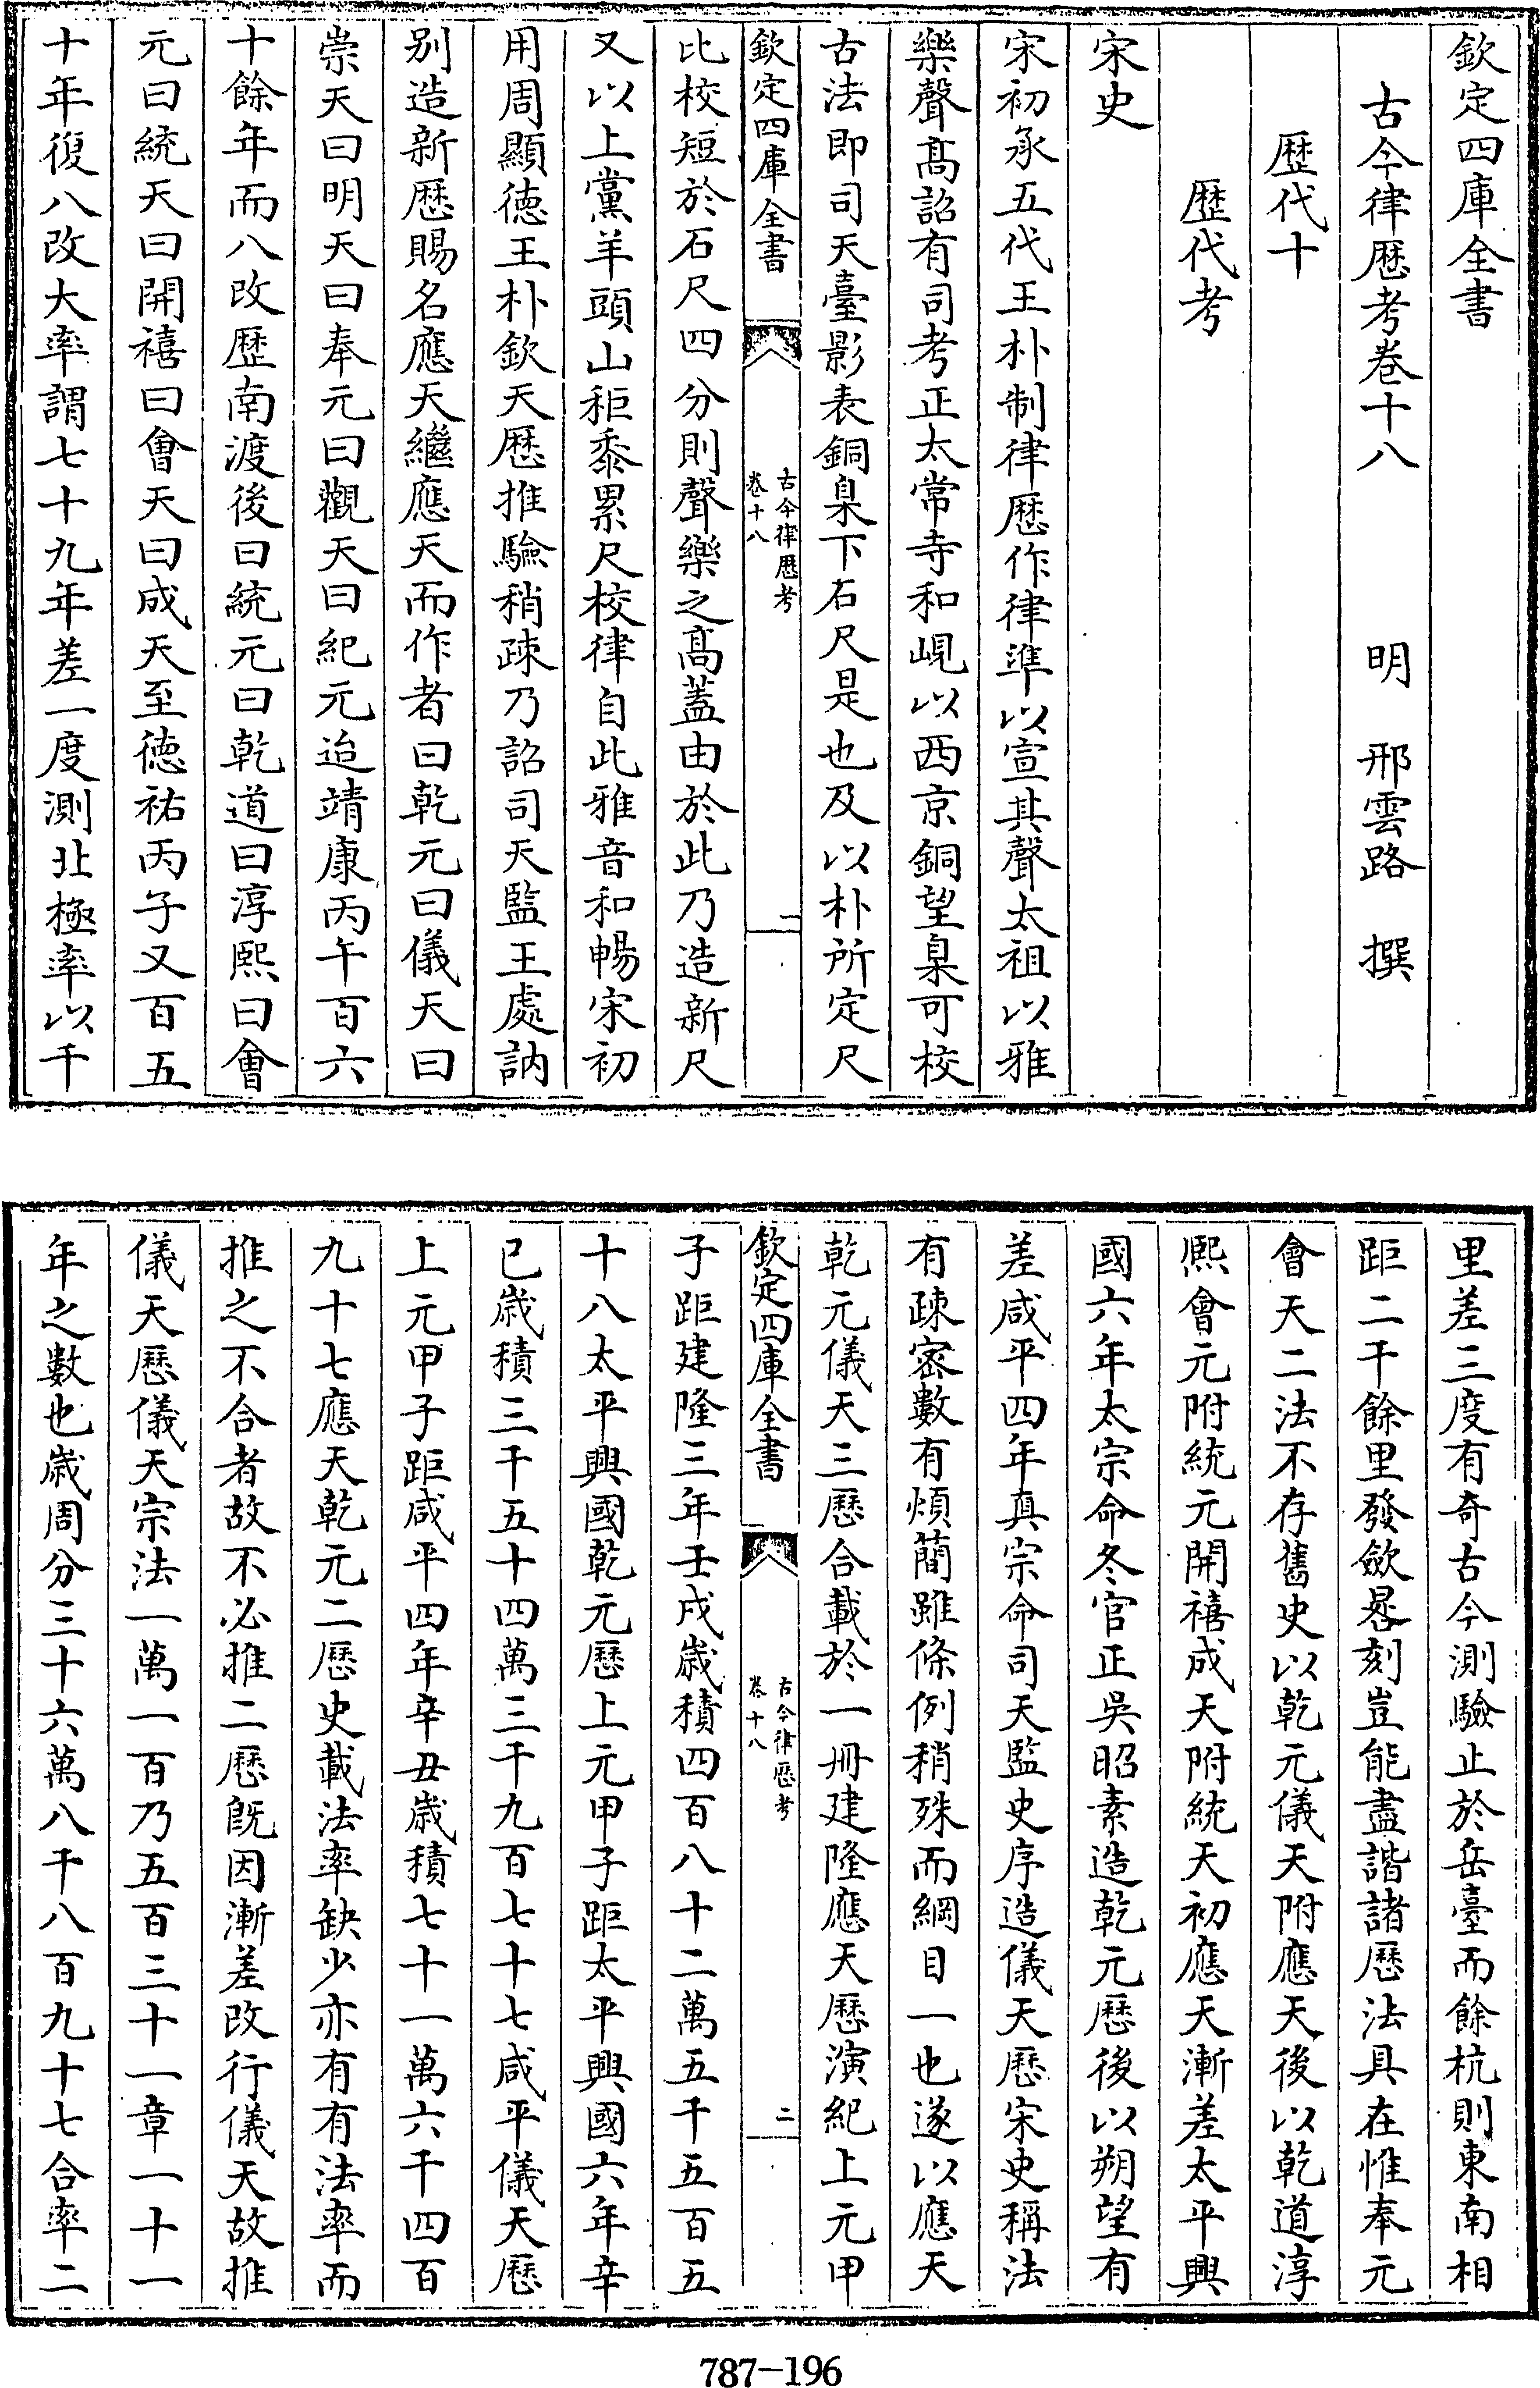 欽定四庫全書
古今律厯考卷十八
明 邢雲路 撰
歴代十
歴代考
宋史
宋初承五代王朴制律厯作律準以宣其聲太祖以雅
樂聲髙詔有司考正太常寺和峴以西京銅望臬可校
古法即司天臺影表銅臬下石尺是也及以朴所定尺
欽定四庫全書
古今律厯考
卷十八
一
比校短於石尺四分則聲樂之髙蓋由於此乃造新尺
又以上黨羊頭山秬黍累尺校律自此雅音和暢宋初
用周顯徳王朴欽天厯推驗稍疎乃詔司天監王處訥
别造新厯賜名應天繼應天而作者曰乾元曰儀天曰
崇天曰明天曰奉元曰觀天曰紀元迨靖康丙午百六
十餘年而八改歴南渡後曰統元曰乾道曰淳熙曰會
元曰統天曰開禧曰會天曰成天至徳祐丙子又百五
十年復八改大率謂七十九年差一度測北極率以千
里差三度有奇古今測驗止於岳臺而餘杭則東南相
距二千餘里發斂晷刻豈能盡諧諸厯法具在惟奉元
會天二法不存舊史以乾元儀天附應天後以乾道淳
熙會元附統元開禧成天附統天初應天漸差太平興
國六年太宗命冬官正吳昭素造乾元厯後以朔望有
差咸平四年真宗命司天監史序造儀天厯宋史稱法
有疎密數有煩簡雖條例稍殊而綱目一也遂以應天
乾元儀天三厯合載於一冊建隆應天厯演紀上元甲
欽定四庫全書
古今律厯考
卷十八
二
子距建隆三年壬戌歲積四百八十二萬五千五百五
十八太平興國乾元厯上元甲子距太平興國六年辛
巳歲積三千五十四萬三千九百七十七咸平儀天厯
上元甲子距咸平四年辛丑歲積七十一萬六千四百
九十七應天乾元二厯史載法率缺少亦有有法率而
推之不合者故不必推二厯旣因漸差改行儀天故推
儀天厯儀天宗法一萬一百乃五百三十一章一十一
年之數也歲周分三十六萬八千八百九十七合率二
787-196